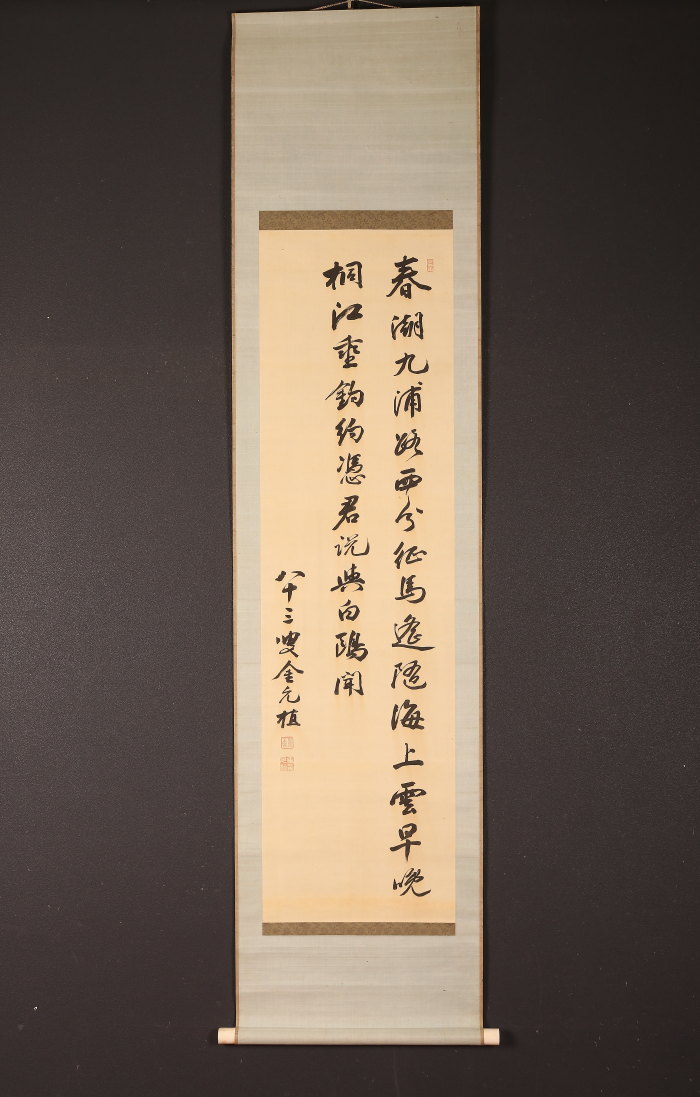 春潮九浦路西分征馬遙隨海上雲早晚
桐江垂釣約憑君說與白鷗聞
八十三叟金允植